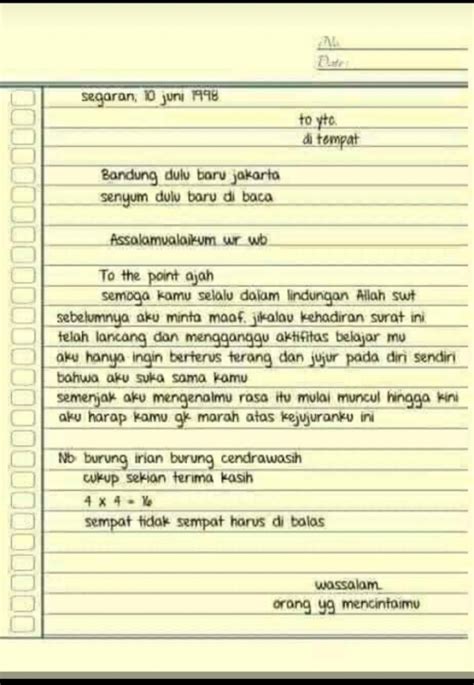 No.
Date:
segaran, 10 juni 1998
to ytc.
di tempat
Bandung dulu baru jakarta
senyum dulu baru di baca
Assalamualaikum wr wb
To the point ajah
semoga kamu selalu dalam lindungan Allah swt
sebelumnya aku minta maaf. jikalau kehadiran surat ini
telah lancang dan mengganggu aktifitas belajar mu
aku hanya ingin berterus terang dan jujur pada diri sendiri
bahwa aku suka sama kamu
semenjak aku mengenalmu rasa itu mulai muncul hingga kini
aku harap kamu gk marah atas kejujuranku ini
Nb: burung irian burung cendrawasih
cukup sekian terima kasih
4 x 4 = 16
sempat tidak sempat harus di balas
wassalam.
orang yg mencintaimu